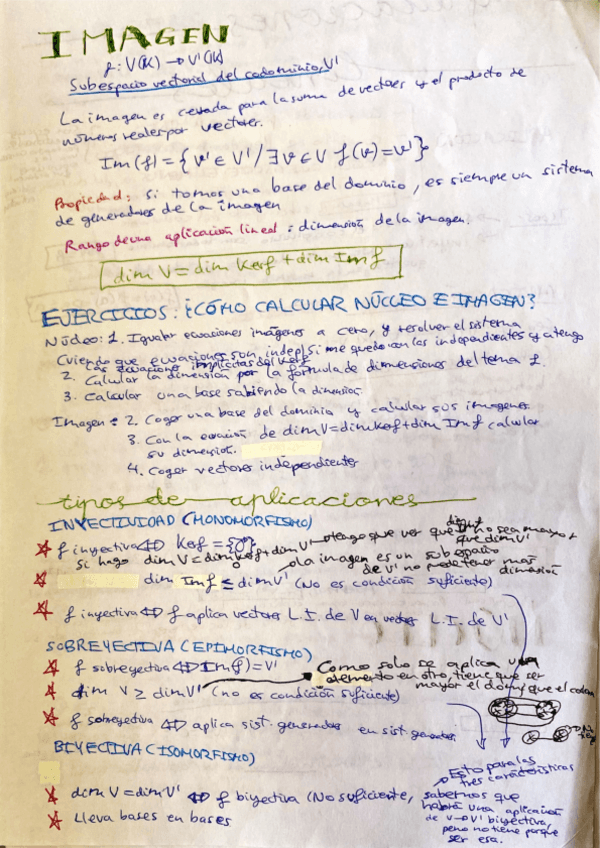 IMAGEN
f: V(K) → V'(K)
Subespacio vectorial del codominio, V'
La imagen es cerrada para la suma de vectores y el producto de
números reales por vectores.
Im(f) = { v' ∈ V' / ∃ v ∈ V f(v) = v' }
Propiedad: Si tomos una base del dominio, es siempre un sistema
de generadores de la imagen
Rango de una aplicación lineal: dimensión de la imagen.
dim V = dim Kerf + dim Imf
EJERCICIOS: ¿CÓMO CALCULAR NÚCLEO E IMAGEN?
Núcleo: 1. Igualar ecuaciones imágenes a cero, y resolver el sistema
(viendo que ecuaciones son indep) si me quedo con las independientes ya tengo
las ecuaciones implícitas del Kerf
2. Calcular la dimensión por la fórmula de dimensiones del tema 1.
3. Calcular una base sabiendo la dimensión.
Imagen: 2. Coger una base del dominio y calcular sus imagenes
3. Con la ecuación de dim V = dim Kerf + dim Imf calcular
su dimensión.
4. Coger vectores independientes
tipos de aplicaciones
INYECTIVIDAD (MONOMORFISMO)
f inyectiva ⇔ Kerf = {0}
si hago dim V = dim Kerf + dim V' → tengo que ver que no sea mayor
que dim V'
dim Imf ≤ dim V' (No es condición suficiente)
la imagen es un subespacio
de V' no puede tener más
dimensión
f inyectiva ⇔ f aplica vectores L.I. de V en vectores L.I. de V'
SOBREYECTIVA (EPIMORFISMO)
f sobreyectiva ⇔ Im(f) = V'
Como solo se aplica un
elemento en otro, tiene que ser
mayor el dom que el codom
dim V ≥ dim V' (no es condición suficiente)
f sobreyectiva ⇔ aplica sist. generadores en sist. generadores.
BIYECTIVA (ISOMORFISMO)
Esto para las
tres características
dim V = dim V' ⇔ f biyectiva (No suficiente, sabemos que
habrá una aplicación
de V → V' biyectiva,
pero no tiene porque
ser esa.
Lleva bases en bases